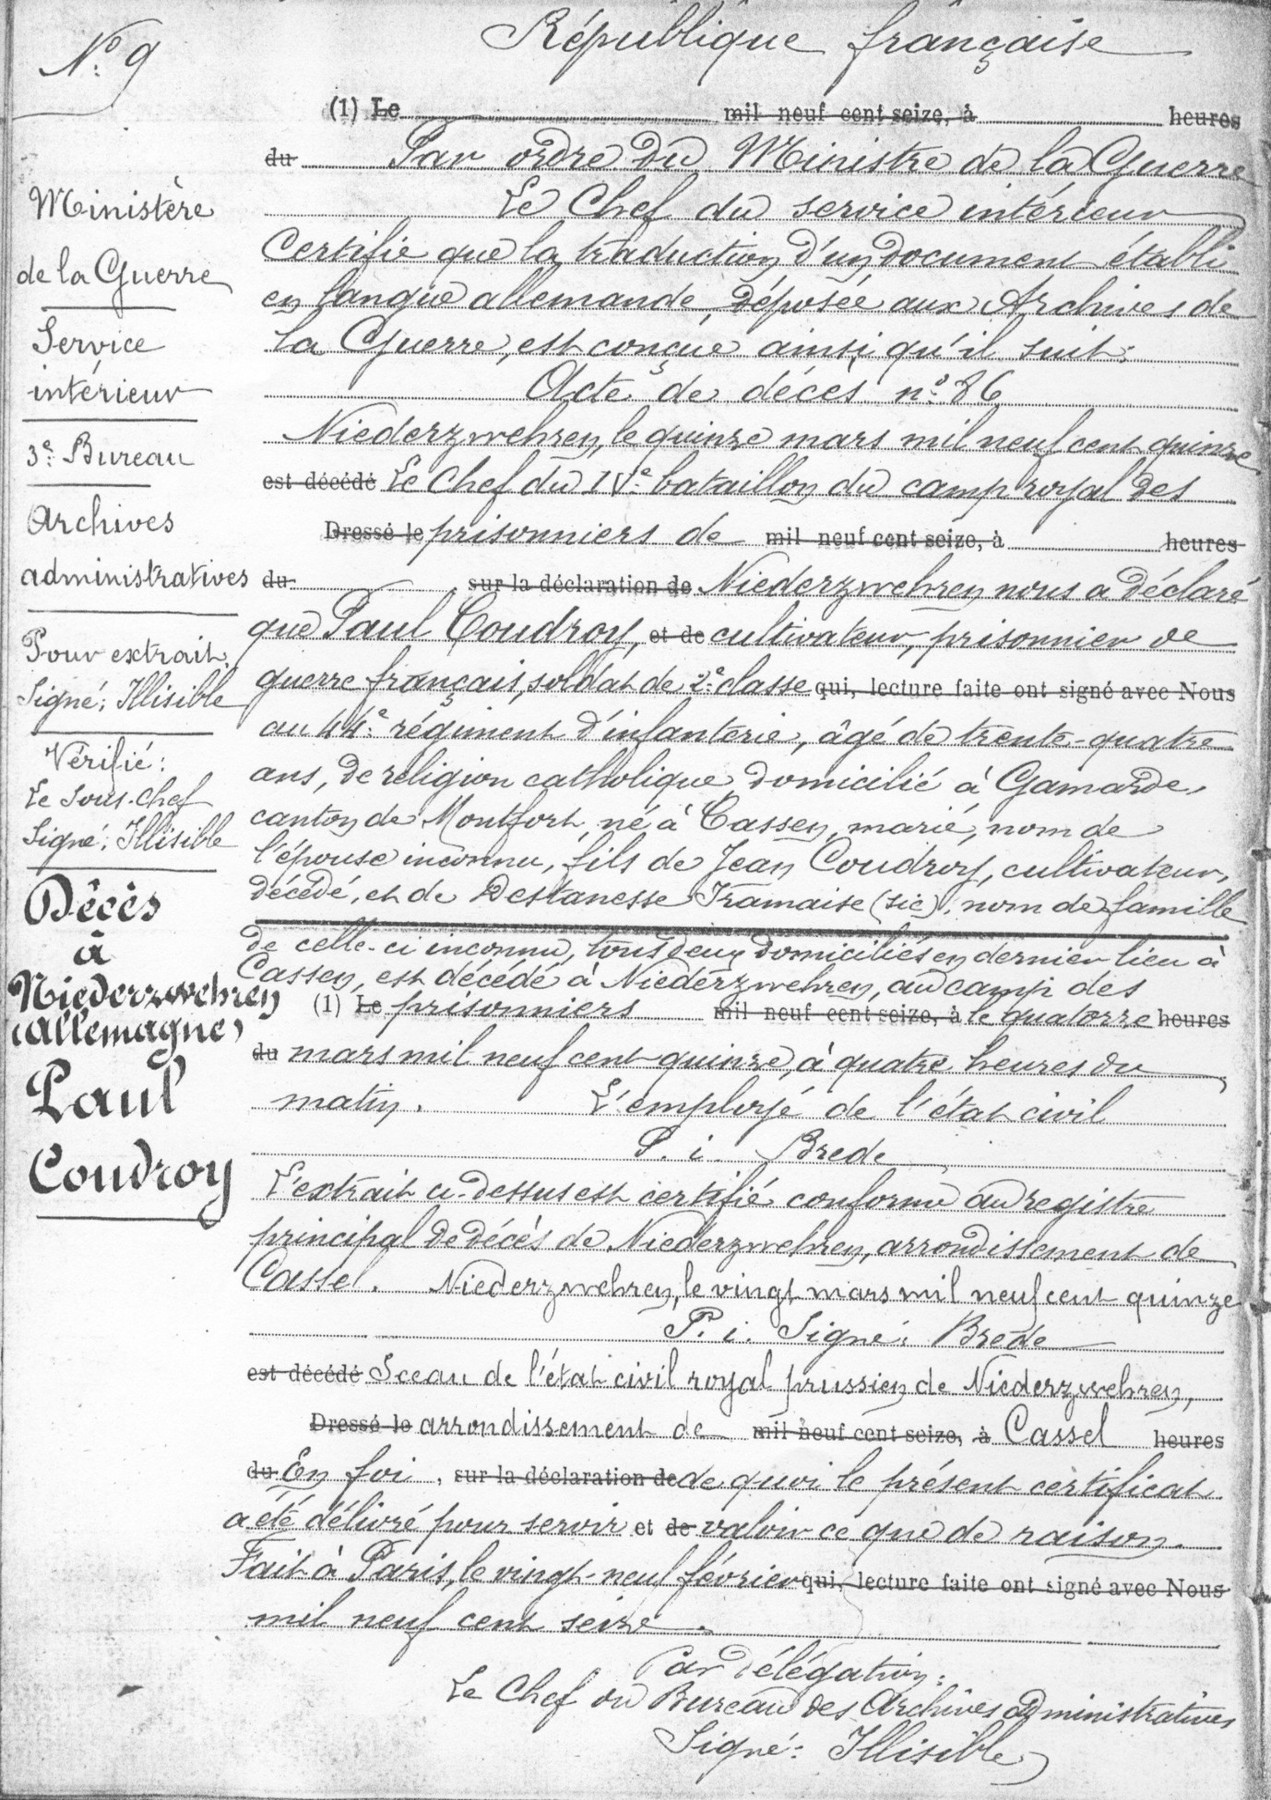 N° 9
République française
Ministère
de la Guerre
Service
intérieur
3e Bureau
Archives
administratives
Pour extrait,
Signé: Illisible
Vérifié:
Le Sous-chef
Signé: Illisible
Décès
à
Niederzwehren
(Allemagne)
Paul
Coudroy
(1) Le mil neuf cent seize, à heures
du Par ordre du Ministre de la Guerre
Le Chef du service intérieur
Certifie que la traduction d'un document établi
en langue allemande, déposée aux Archives de
la Guerre, est conçue ainsi qu'il suit:
Acte de décès n° 86
Niederzwehren, le quinze mars mil neuf cent quinze
est décédé Le Chef du IVe bataillon du camp royal des
Dressé le prisonniers de mil neuf cent seize, à heures
du sur la déclaration de Niederzwehren nous a déclaré
que Paul Coudroy, et de cultivateur, prisonnier de
guerre français, soldat de 2e classe qui, lecture faite ont signé avec Nous
au 44e régiment d'infanterie, âgé de trente-quatre
ans, de religion catholique, domicilié à Gamarde,
canton de Montfort, né à Cassen, marié, nom de
l'épouse inconnu, fils de Jean Coudroy, cultivateur,
décédé, et de Destanesse Tramaise (sic), nom de famille
de celle-ci inconnu, tous deux domiciliés en dernier lieu à
Cassen, est décédé à Niederzwehren, au camp des
(1) Le prisonniers mil neuf cent seize, à le quatorze heures
du mars mil neuf cent quinze, à quatre heures du
matin. L'employé de l'état civil
P. i. Brede
L'extrait ci-dessus est certifié conforme au registre
principal de décès de Niederzwehren, arrondissement de
Cassel. Niederzwehren, le vingt mars mil neuf cent quinze
P. i. Signé: Brede
est décédé Sceau de l'état civil royal prussien de Niederzwehren,
Dressé le arrondissement de mil neuf cent seize, à Cassel heures
du En foi, sur la déclaration de de quoi le présent certificat
a été délivré pour servir et de valoir ce que de raison.
Fait à Paris, le vingt-neuf février qui, lecture faite ont signé avec Nous
mil neuf cent seize.
Par délégation:
Le Chef du Bureau des Archives administratives
Signé: Illisible